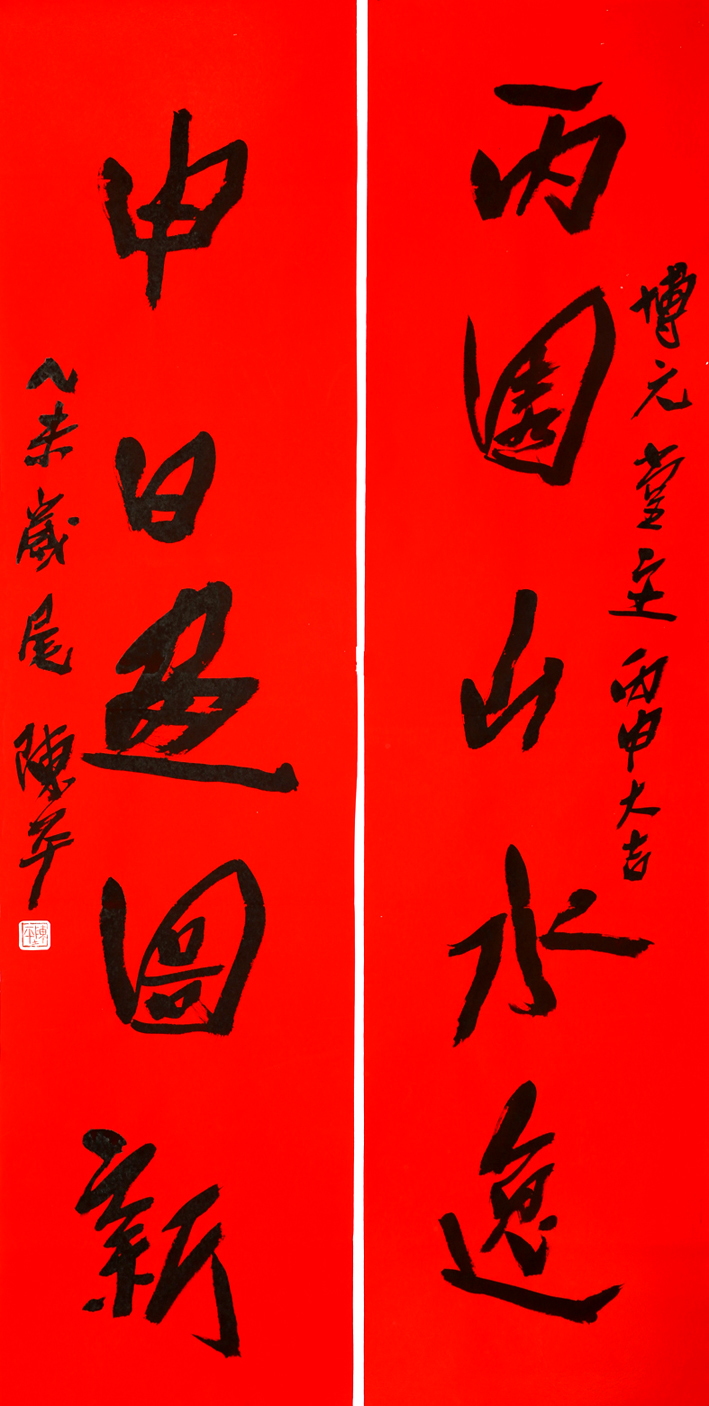 博元堂主丙申大吉
丙園山水逸
申日畫圖新
乙未歲尾 陳平